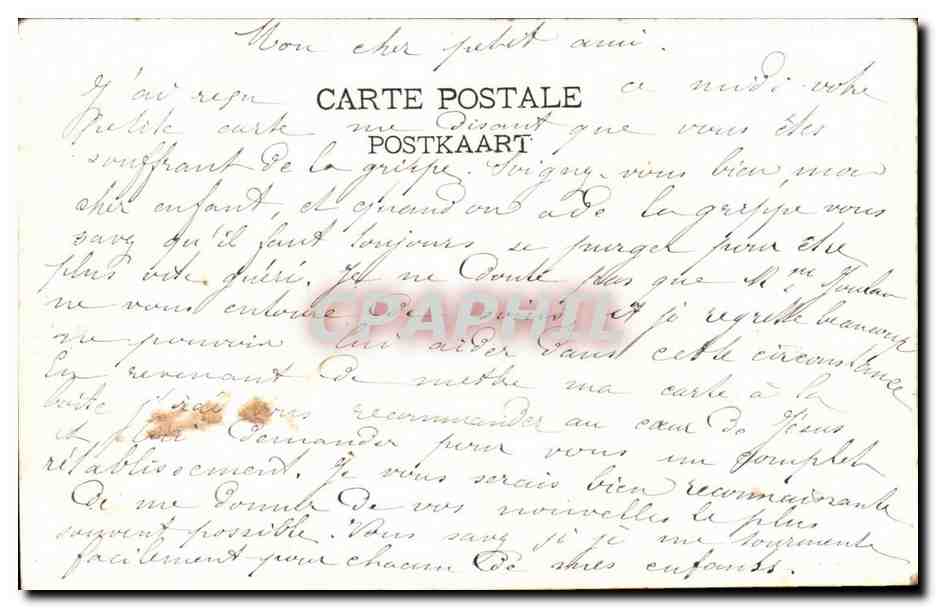 Mon cher petit ami.
J'ai reçu ce midi votre
CARTE POSTALE
petite carte me disant que vous êtes
POSTKAART
souffrant de la grippe. Soignez-vous bien, mon
cher enfant, et quand on a de la grippe vous
savez qu'il faut toujours se purger pour être
plus vite guéri. Je ne doute pas que Mme
CPAPHIL
ne vous entoure de soins et je regrette beaucoup
ne pouvoir lui aider dans cette circonstance.
En revenant de mettre ma carte à la
boîte, j'irai vous recommander au cœur de Jésus
et lui demander pour vous un complet
rétablissement. Je vous serais bien reconnaissante
de me donner de vos nouvelles le plus
souvent possible. Vous savez si je me tourmente
facilement pour chacun de mes enfants.